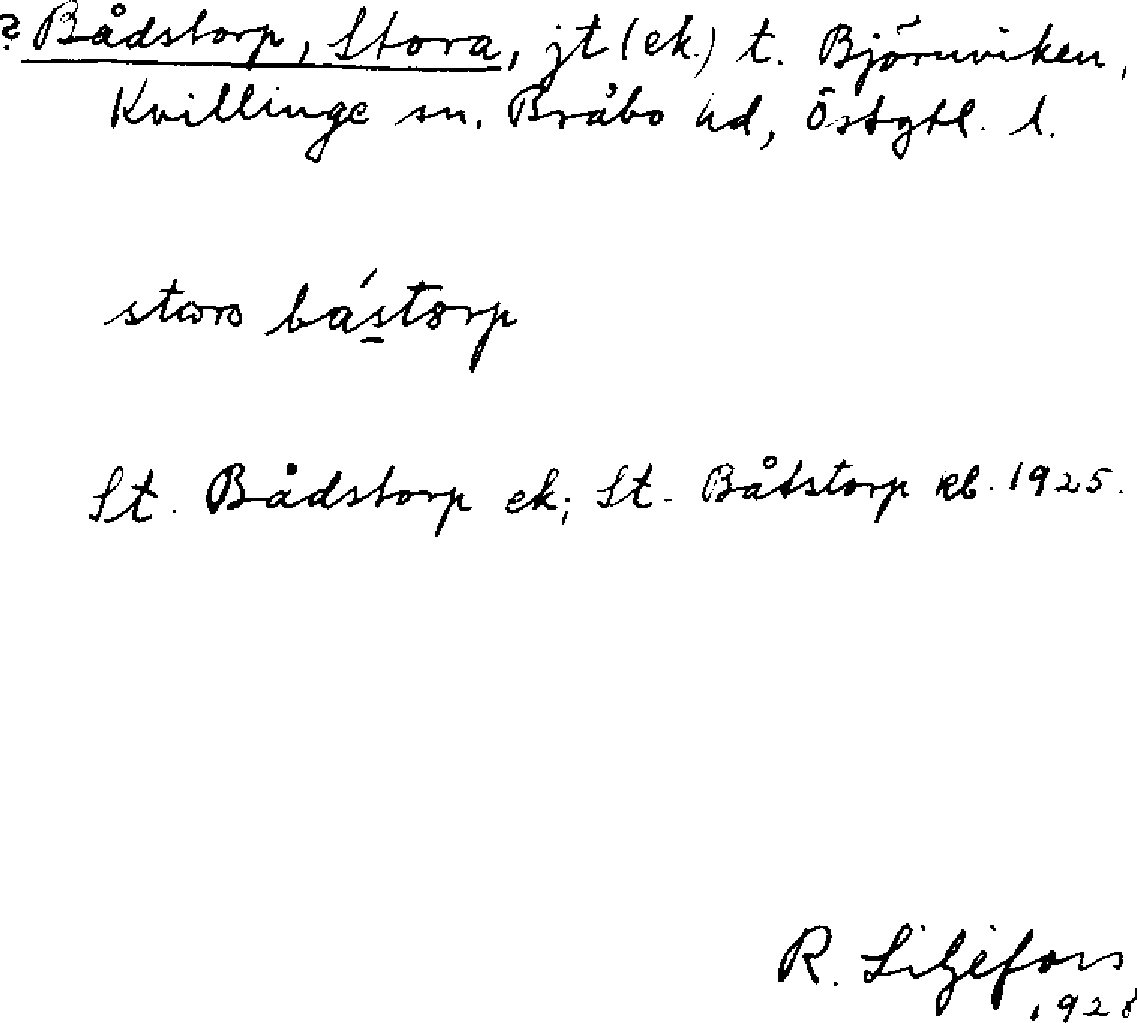 ? Bådstorp, Stora, jt (ek.) t. Björnviken,
Kvillinge sn. Bråbo hd, Östgtl. l.
básto̵rp
St. Bådstorp ek; St. Båtstorp kb. 1925.
R. Liljefors
1928